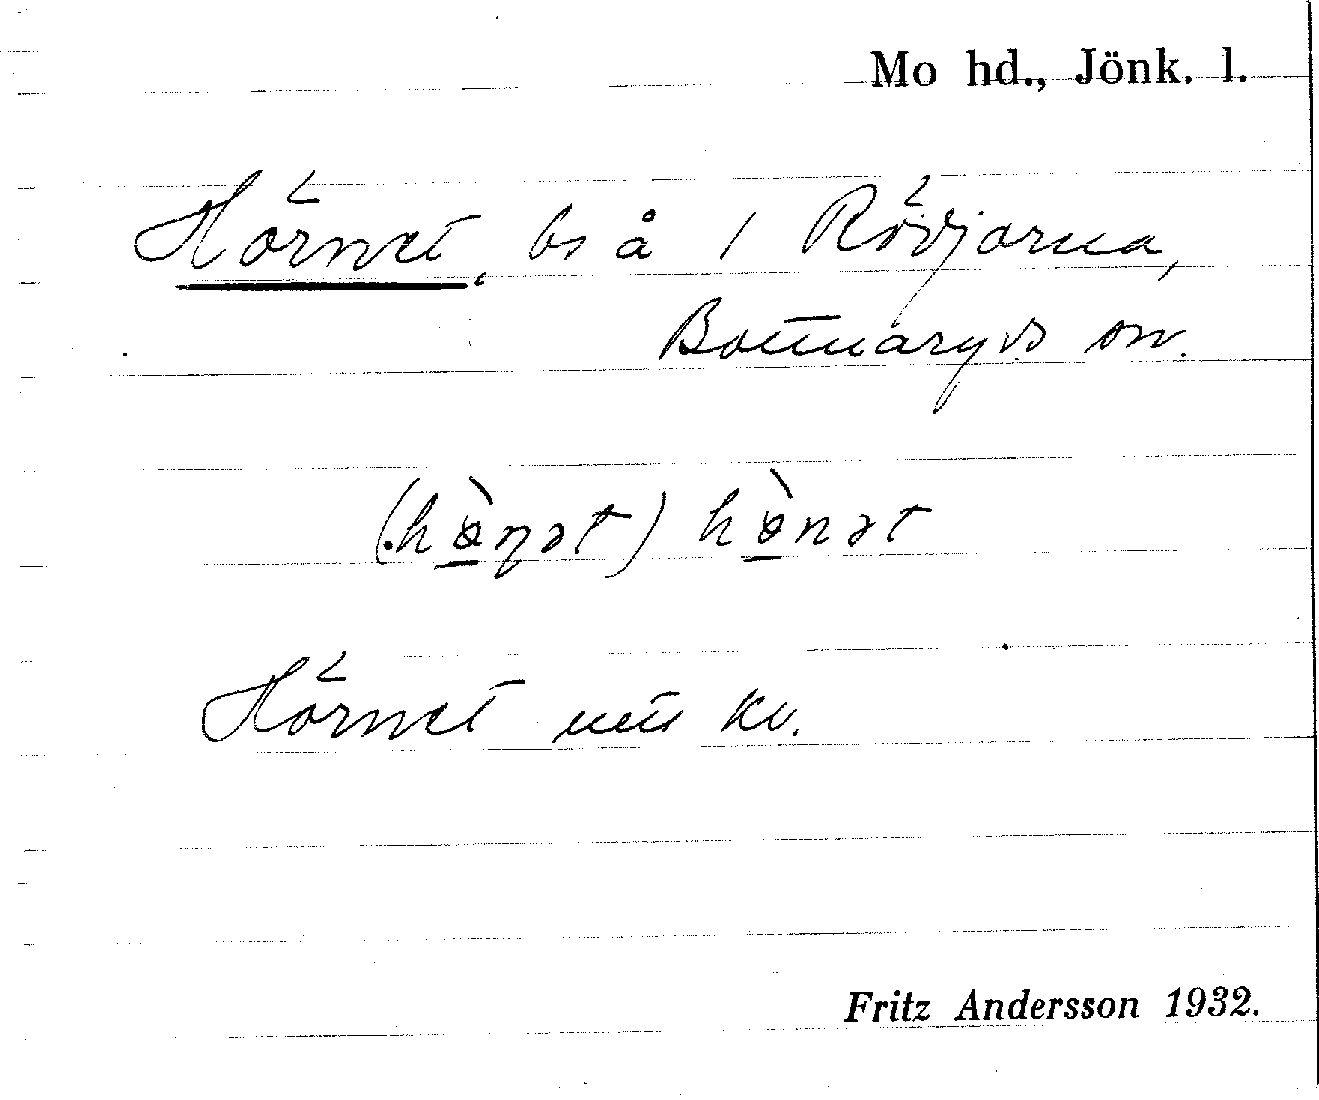 Mo hd., Jönk. l.
Hörnet, bs å 1 Rödjorna,
Bottnaryds sn.
(hònət) hònət
Hörnet kv.
Fritz Andersson 1932.